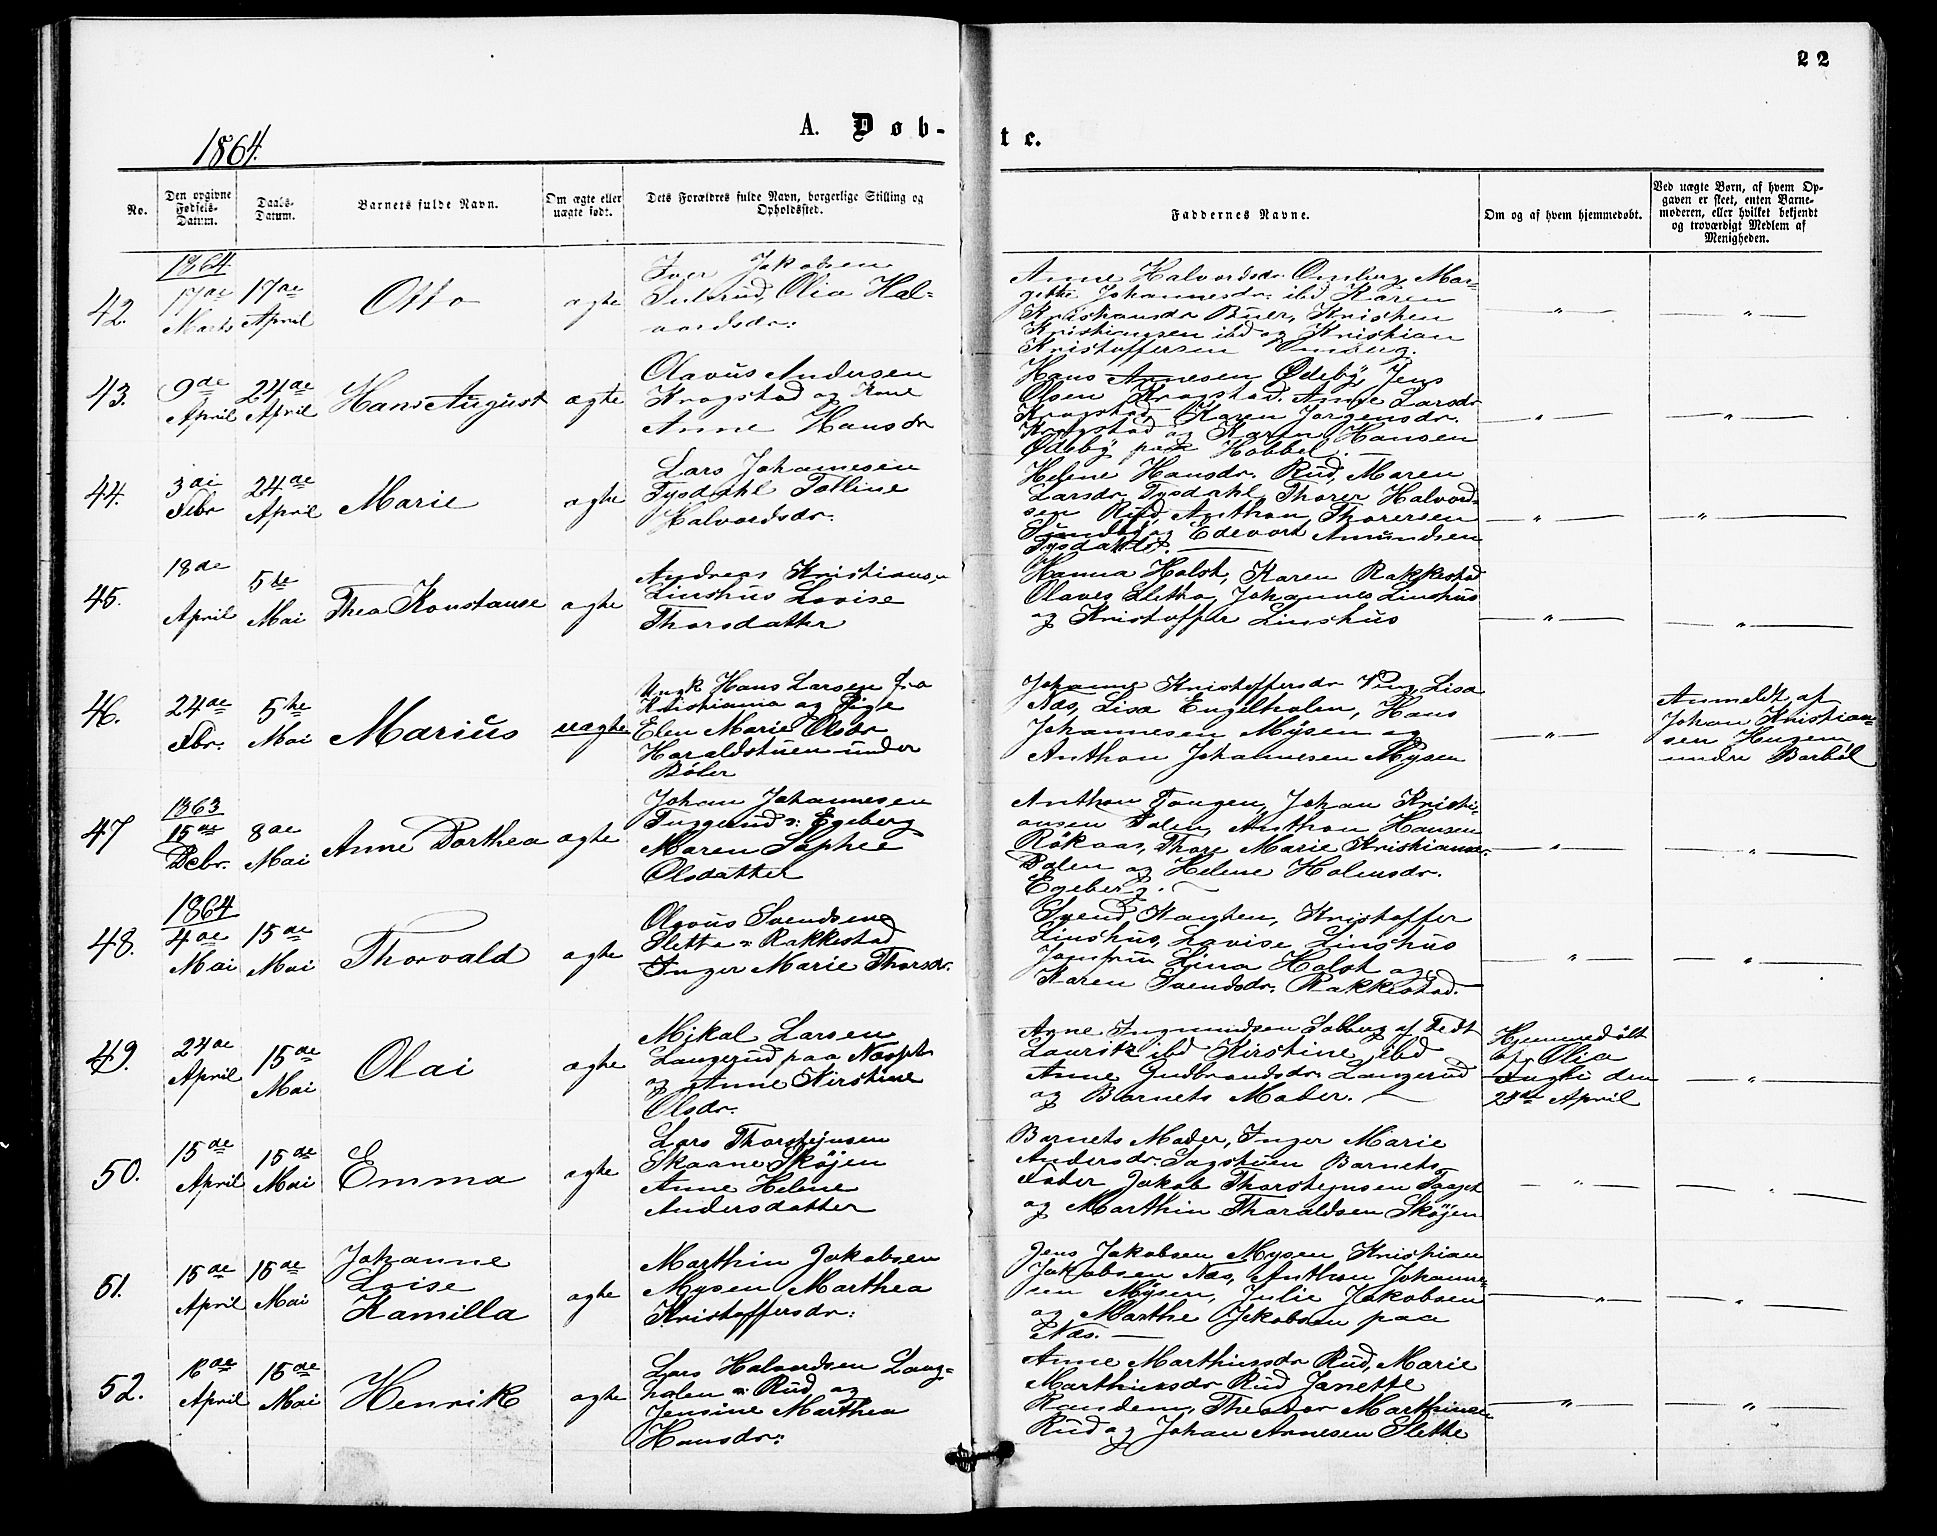 22
1864.
A. Døb-
te.
No.
Den opgivne Fødsels-Datum.
Daabs-Datum.
Barnets fulde Navn.
Om ægte eller uægte født.
Dets Forældres fulde Navn, borgerlige Stilling og Opholdssted.
Faddernes Navne.
Om og af hvem hjemmedøbt.
Ved uægte Børn, af hvem Op-
gaven er skeet, enten Barne-
moderen, eller hvilket bekjendt
og troværdigt Medlem af
Menigheden.
42.
1864
17de
Marts
17de
April
Otto
ægte
Iver Jakobsen
Olia Hal-
vordsdr:
Anne Halvordsdr. Omberg, Mar-
gitte Johannesdr. ibd Karen
Kristiansdr Buer, Kristen
Kristiansen ibd og Kristian
Kristoffersen Omberg.
— " —
— " —
43.
9de
April
24de
April
Hans August
ægte
Olavus Andersen
Krogstad og Kone
Anne Hansdr
Hans Annesen Ødeby, Jens
Olsen Krogstad. Anne Larsdr
Krogstad, Karen Jørgensdr.
Krogstad og Karen Hansen
Ødeby paa Hobbel. —
— " —
— " —
44.
3di
Febr
24de
April
Marie
ægte
Lars Johannesen
Tysdahl Tolline
Halvordsdr.
Helene Hansdr. Rud, Maren
Larsdr. Tysdahl, Thorer Halvord-
sen Rud, Anthon Thorersen
Sundby og Edevart Amundsen
Tysdahl. —
— " —
— " —
45.
18de
April
5te
Mai
Thea Konstanse
ægte
Andreas Kristiansen
Linshus Lovise
Thorsdatter
Hanna Holst, Karen Rakkestad
Olaves Sletta, Johannes Linshus
og Kristoffer Linshus
— " —
— " —
46.
24de
Fbr.
5te
Mai
Marius
uægte
Ungk Hans Larsen fra
Kristiania og Pige
Elen Marie Olsdr.
Haraldstuen under
Böler
Johanne Kristoffersdr Lisa
Næs, Lisa Engelholm, Hans
Johannesen Mysen og
Anthon Johannesen Mysen
— " —
Anmeldt af
Johan Kristian-
sen
undre Barböl
47
1863
15de
Debr.
8de
Mai
Anne Dorthea
ægte
Johan Johannesen
Tuggerud v: Egeberg
Maren Sophie
Olsdatter
Anthon Tangen, Johan Kristi-
ansen Dalen, Anthon Hansen
Rökaas, Thore Marie Kristiansdr.
Dalen og Helene Holmsdr.
Egeberg. —
— " —
— " —
48.
1864
4de
Mai
15de
Mai
Thorvald
ægte
Olavus Svendsen
Sletta v: Rakkestad
Inger Marie Thorsdr.
Svend Kangten, Kristoffer
Linshus, Lovise Linshus
Jomfru Lina Holst og
Karen Svendsdr. Rakkestad.
— " —
— " —
49.
24de
April
15de
Mai
Olai
ægte
Mikal Larsen
Langerud paa Næsset
og Anne Kirstine
Olsdr.
Arne Ingmundsen Solberg af Tedt
Lauritz ibd Kirstine ibd
Anne Gudbrandsdr. Langerud
og Barnets Moder. —
Hjemmedöbt
af Olia
Fugli den
28de April
— " —
50.
15de
April
15de
Mai
Emma
ægte
Lars Thorstejnsen
Skaane Skøjen
Anne Helene
Andersdatter
Barnets Moder, Inger Marie
Andersdr. Sagstuen Barnets
Fader Jakob Thorstejnsen Taajet
og Marthin Tharaldsen Skøjen
— " —
— " —
51.
15de
April
15de
Mai
Johanne
Loise
Kamilla
ægte
Marthin Jakobsen
Mysen Marthea
Kristoffersdr:
Jens Jakobsen Mysen Kristian
Jakobsen Næs, Anthon Johanne-
sen Mysen, Julie Jakobsen
og Marthe Jakobsen paa
Næs. —
— " —
— " —
52.
16de
April
15de
Mai
Henrik
ægte
Lars Halvordsen Lang-
holen v: Rud og
Jensine Marthea
Hansdr:
Anne Marthinsdr Rud, Marie
Marthinsdr Rud Janette
Randem, Theodor Marthinsen
Rud og Johan Arnesen Slette
— " —
— " —